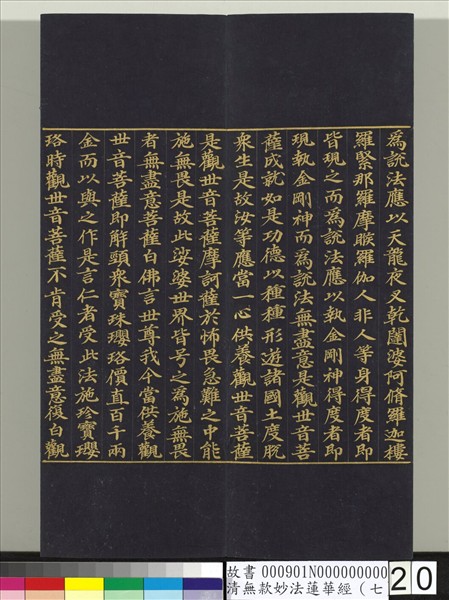 為說法應以天龍夜叉乾闥婆阿脩羅迦樓
羅緊那羅摩睺羅伽人非人等身得度者即
皆現之而為說法應以執金剛神得度者即
現執金剛神而為說法無盡意是觀世音菩
薩成就如是功德以種種形遊諸國土度脫
眾生是故汝等應當一心供養觀世音菩薩
是觀世音菩薩摩訶薩於怖畏急難之中能
施無畏是故此娑婆世界皆号之為施無畏
者無盡意菩薩白佛言世尊我今當供養觀
世音菩薩即解頸眾寶珠瓔珞價直百千兩
金而以與之作是言仁者受此法施珍寶瓔
珞時觀世音菩薩不肯受之無盡意復白觀
故書 000901N000000000
清無款妙法蓮華經（七
20